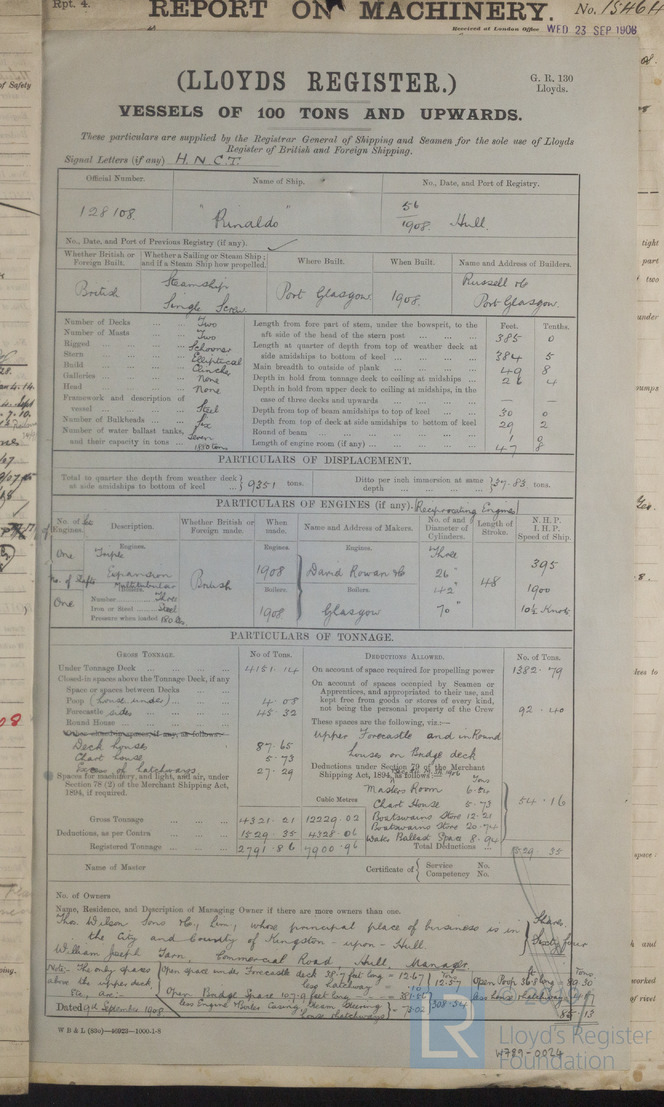 Rpt. 4.
REPORT ON MACHINERY.
No. 15464
Received at London Office WED 23 SEP 1908
(LLOYDS REGISTER.)
G. R. 130
Lloyds.
VESSELS OF 100 TONS AND UPWARDS.
These particulars are supplied by the Registrar General of Shipping and Seamen for the sole use of Lloyds
Register of British and Foreign Shipping.
Signal Letters (if any) H.N.C.T.
Official Number. Name of Ship. No., Date, and Port of Registry.
128108. "Rinaldo" 56/1908. Hull.
No., Date, and Port of Previous Registry (if any).
Whether British or Foreign Built. Whether a Sailing or Steam Ship; and if a Steam Ship how propelled. Where Built. When Built. Name and Address of Builders.
British Steamship Single Screw Port Glasgow 1908. Russell & Co Port Glasgow.
Number of Decks ... ... Two
Number of Masts ... ... Two
Rigged ... ... Schooner
Stern ... ... Elliptical
Build ... ... Clincher
Galleries ... ... None
Head ... ... None
Framework and description of vessel ... Steel
Number of Bulkheads ... Six
Number of water ballast tanks, and their capacity in tons ... Seven 1250 tons
Feet. Tenths.
Length from fore part of stem, under the bowsprit, to the aft side of the head of the stern post 385 0
Length at quarter of depth from top of weather deck at side amidships to bottom of keel 384 5
Main breadth to outside of plank 49 8
Depth in hold from tonnage deck to ceiling at midships 26 4
Depth in hold from upper deck to ceiling at midships, in the case of three decks and upwards — —
Depth from top of beam amidships to top of keel 30 0
Depth from top of deck at side amidships to bottom of keel 29 2
Round of beam 1 0
Length of engine room (if any) 47 8
PARTICULARS OF DISPLACEMENT.
Total to quarter the depth from weather deck at side amidships to bottom of keel 9351 tons. Ditto per inch immersion at same depth 37.83 tons.
PARTICULARS OF ENGINES (if any). Reciprocating Engines
No. of Engines. Description. Whether British or Foreign made. When made. Name and Address of Makers. No. of and Diameter of Cylinders. Length of Stroke. N.H.P. I.H.P. Speed of Ship.
Engines. Engines. Engines.
One Triple Expansion British 1908 David Rowan & Co Three 26" 42" 70" 48 395
No. of Shafts Multitubular Boilers. Boilers. 1900
One Number Three
Iron or Steel Steel 1908 Glasgow 10½ Knots
Pressure when loaded 180 lbs.
PARTICULARS OF TONNAGE.
GROSS TONNAGE. No. of Tons. DEDUCTIONS ALLOWED. No. of Tons.
Under Tonnage Deck 4151.14
Closed-in spaces above the Tonnage Deck, if any
Space or spaces between Decks
Poop (house under) 4.08
Forecastle sides 45.32
Round House
Deck house 87.65
Chart house 5.73
Excess of hatchways 27.29
Spaces for machinery, and light, and air, under Section 78 (2) of the Merchant Shipping Act, 1894, if required.
Gross Tonnage 4321.21 12229.02
Deductions, as per Contra 1529.35 4328.06
Registered Tonnage 2791.86 7900.96
On account of space required for propelling power 1382.79
On account of spaces occupied by Seamen or Apprentices, and appropriated to their use, and kept free from goods or stores of every kind, not being the personal property of the Crew 92.40
These spaces are the following, viz.:—
Upper Forecastle and in Round
house on Bridge deck
Deductions under Section 79 of the Merchant Shipping Act, 1894, as follows:—
Cubic Metres
Masters Room
Chart House 5.73
Boatswains Store 12.21
Boatswains Store 20.74
Water Ballast Space 8.94
54.16
Total Deductions 1529 35
Name of Master
Certificate of Service No. Competency No.
No. of Owners
Name, Residence, and Description of Managing Owner if there are more owners than one.
Thos. Wilson Sons & Co., Lim., whose principal place of business is in Shares
the City and County of Kingston-upon-Hull. Sixty four
William Joseph Tarn, Commercial Road Hull Manager
Note:- The only spaces above the upper deck
Open space under Forecastle deck 38.7 feet long = 12.67
less hatchway
12.57
Open Bridge Space 107.9 feet long
308.54
Open Poop 36.8 long = 80.30
less house & hatchway
85.13
Dated 9th September 1908
W B & L (83o)—40922—1000-1-8
W789-0024
LR
Lloyd's Register
Foundation